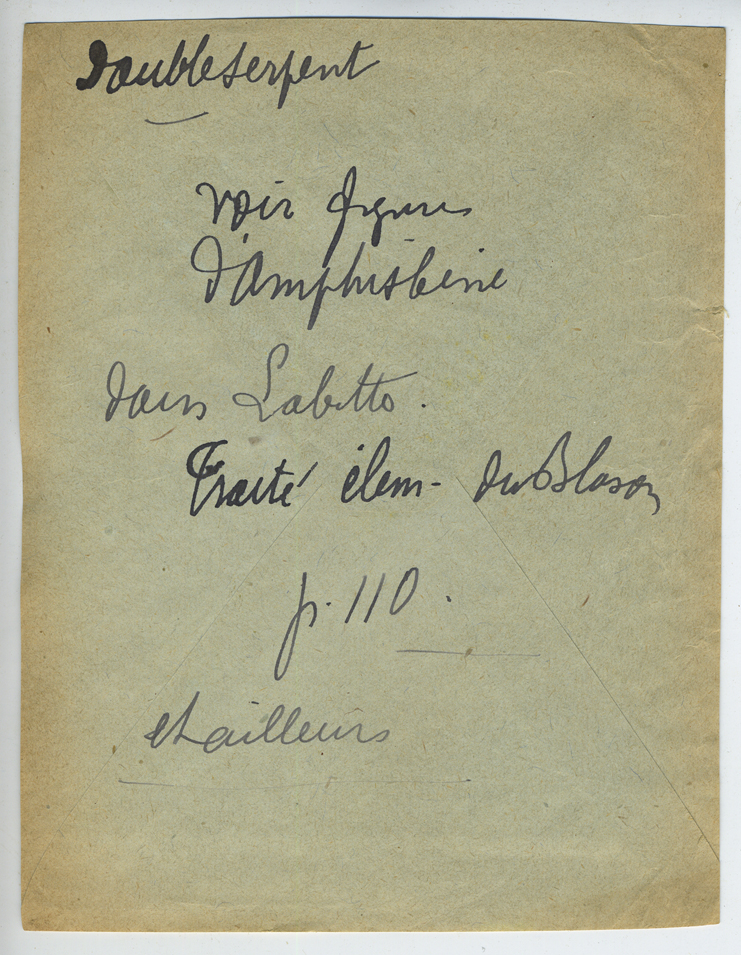 Double serpent
voir figures
d'Amphisbène
dans Labitto.
Traité élem- du Blason
p. 110.
et ailleurs